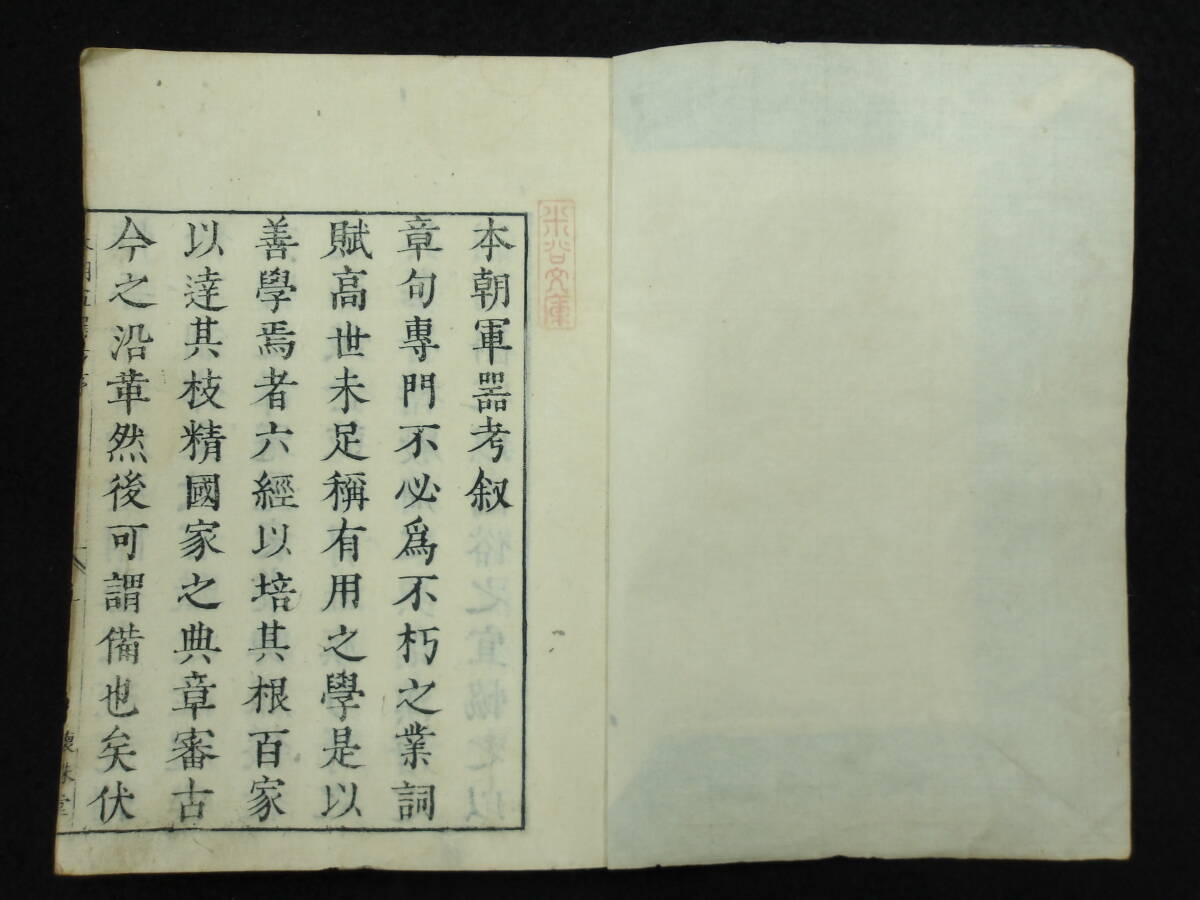 米谷文庫
本朝軍器考叙
章句專門不必爲不朽之業詞
賦高世未足稱有用之學是以
善學焉者六經以培其根百家
以達其枝精國家之典章審古
今之沿革然後可謂備也矣伏